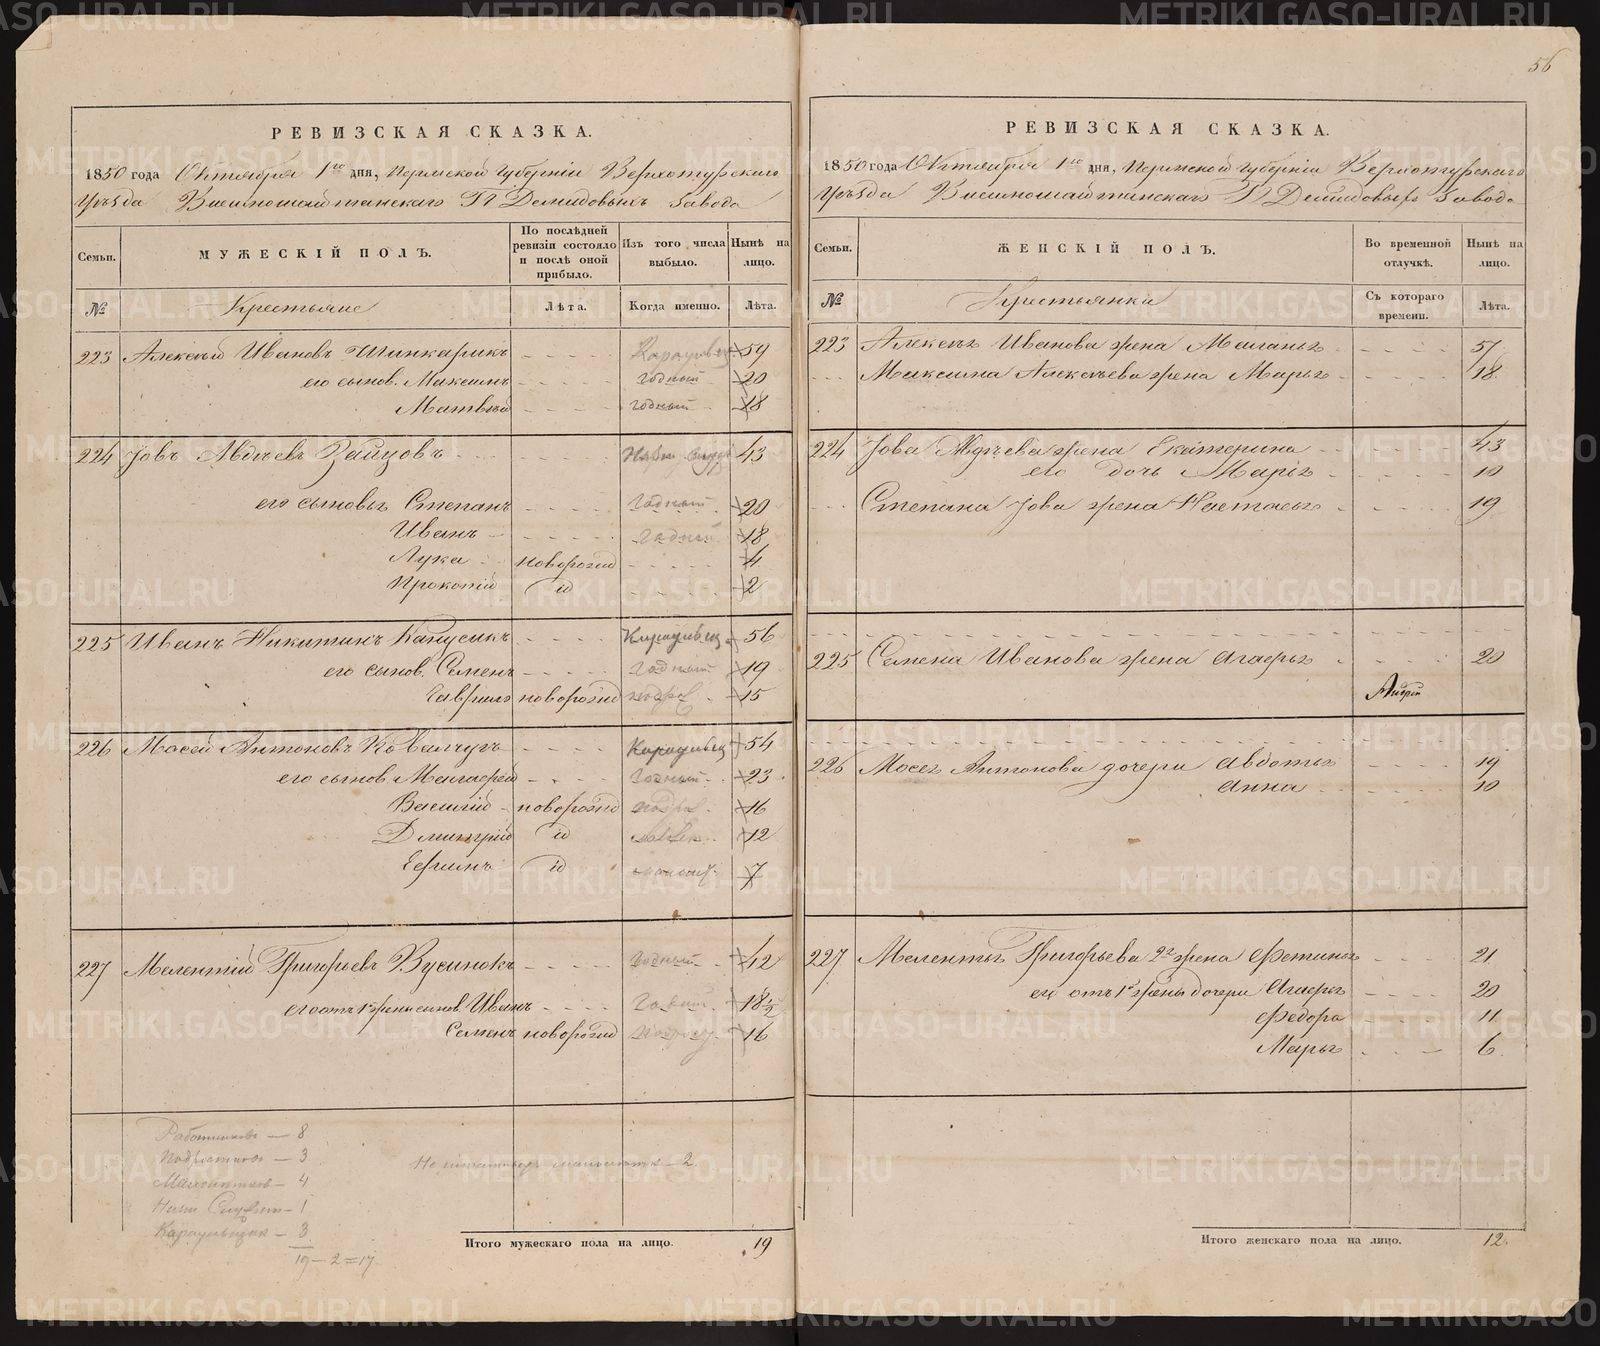 56
РЕВИЗСКАЯ СКАЗКА.
1850 года Октября 1го дня, Пермской Губерніи Верхотурскаго
Уѣзда Висимошайтанскаго Гг Демидовыхъ Завода
Семьи. МУЖЕСКІЙ ПОЛЪ. По послѣдней ревизіи состояло и послѣ оной прибыло. Изъ того числа выбыло. Нынѣ на лицо.
№ Крестьяне Лѣта. Когда именно. Лѣта.
223 Алексѣй Ивановъ Шинкарикъ 59
его сынов. Максимъ годный 20
Матвѣй годный 18
224 Іовъ Авдѣевъ Зайцовъ 43
его сыновья Степанъ годный 20
Иванъ годный 18
Лука новорожд 4
Прокопій id 2
225 Иванъ Никитинъ 56
его сынов. Семенъ годный 19
Гаврило новорожд 15
226 Мосей Антоновъ Ковальчугъ 54
его сынов. Менгафей годный 23
Василій новорожд 16
Дмитрій id 12
Ефимъ id 7
227 Мелентій Григорьевъ Вусинокъ годный 42
его отъ 1й жены сынов. Иванъ 18½
Семенъ новорожд 16
Работниковъ — 8
Подростков — 3
Малолѣтков — 4
— 1
Караульщик — 3
19 — 2 = 17
малолѣтк — 2
Итого мужескаго пола на лицо. 19
РЕВИЗСКАЯ СКАЗКА.
1850 года Октября 1го дня, Пермской Губерніи Верхотурскаго
Уѣзда Висимошайтанскаго Гг Демидовыхъ Завода
Семьи. ЖЕНСКІЙ ПОЛЪ. Во временной отлучкѣ. Нынѣ на лицо.
№ Крестьянки Съ котораго времени. Лѣта.
223 Алексѣя Иванова жена Маланья 51
Максима Алексѣева жена Марья 18
224 Іова Авдѣева жена Екатерина 43
его дочь Марія 10
Степана Іова жена Настасья 19
225 Семена Иванова жена Агафья 20
226 Мосея Антонова дочери Авдотья 19
Анна 10
227 Мелентья Григорьева 2я жена Фетинья 21
его отъ 1й жены дочери Агафья 20
Федора 11
Марья 6
Итого женскаго пола на лицо. 12
METRIKI.GASO-URAL.RU